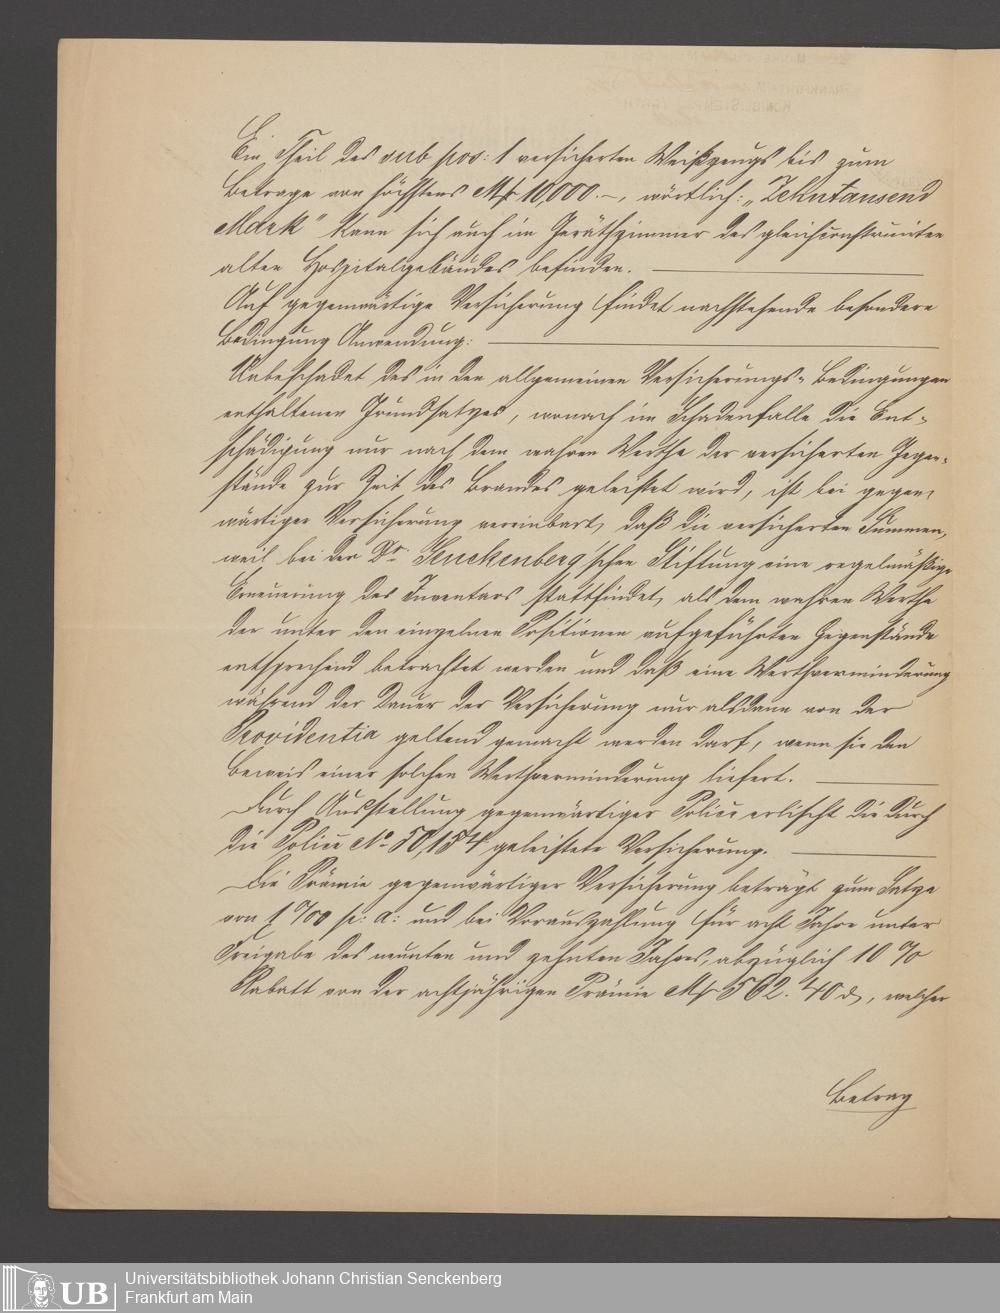 Ein Theil des sub pos: 1 versicherten Weißzeugs bis zum
Betrage von höchstens Mk 10,000.–, wörtlich: „Zehntausend
Mark" kann sich auch im Geräthzimmer des gleichconstruirten
alten Hospitalgebäudes befinden.
Auf gegenwärtige Versicherung findet nachstehende besondere
Bedingung Anwendung:
Unbeschadet des in den allgemeinen Versicherungs-Bedingungen
enthaltenen Grundsatzes, wonach im Schadenfalle die Ent-
schädigung nur nach dem wahren Werthe der versicherten Gegen-
stände zur Zeit des Brandes geleistet wird, ist bei gegen-
wärtiger Versicherung vereinbart, daß die versicherten Summen,
weil bei der Dr. Senckenberg'schen Stiftung eine regelmäßige
Erneuerung des Inventars stattfindet, als dem wahren Werthe
der unter den einzelnen Positionen aufgeführten Gegenstände
entsprechend betrachtet werden und daß eine Werthverminderung
während der Dauer der Versicherung nur alsdann von der
Providentia geltend gemacht werden darf, wenn sie den
Beweis einer solchen Werthverminderung liefert.
Durch Ausstellung gegenwärtiger Police erlischt die durch
die Police No. 50,184 geleistete Versicherung.
Die Prämie gegenwärtiger Versicherung beträgt zum Satze
von 1 ‰ p: a: und bei Vorauszahlung für acht Jahre unter
Freigabe des neunten und zehnten Jahres, abzüglich 10 %
Rabatt von der achtjährigen Prämie Mk 562. 40 d, welcher
Betrag
Universitätsbibliothek Johann Christian Senckenberg
Frankfurt am Main
UB